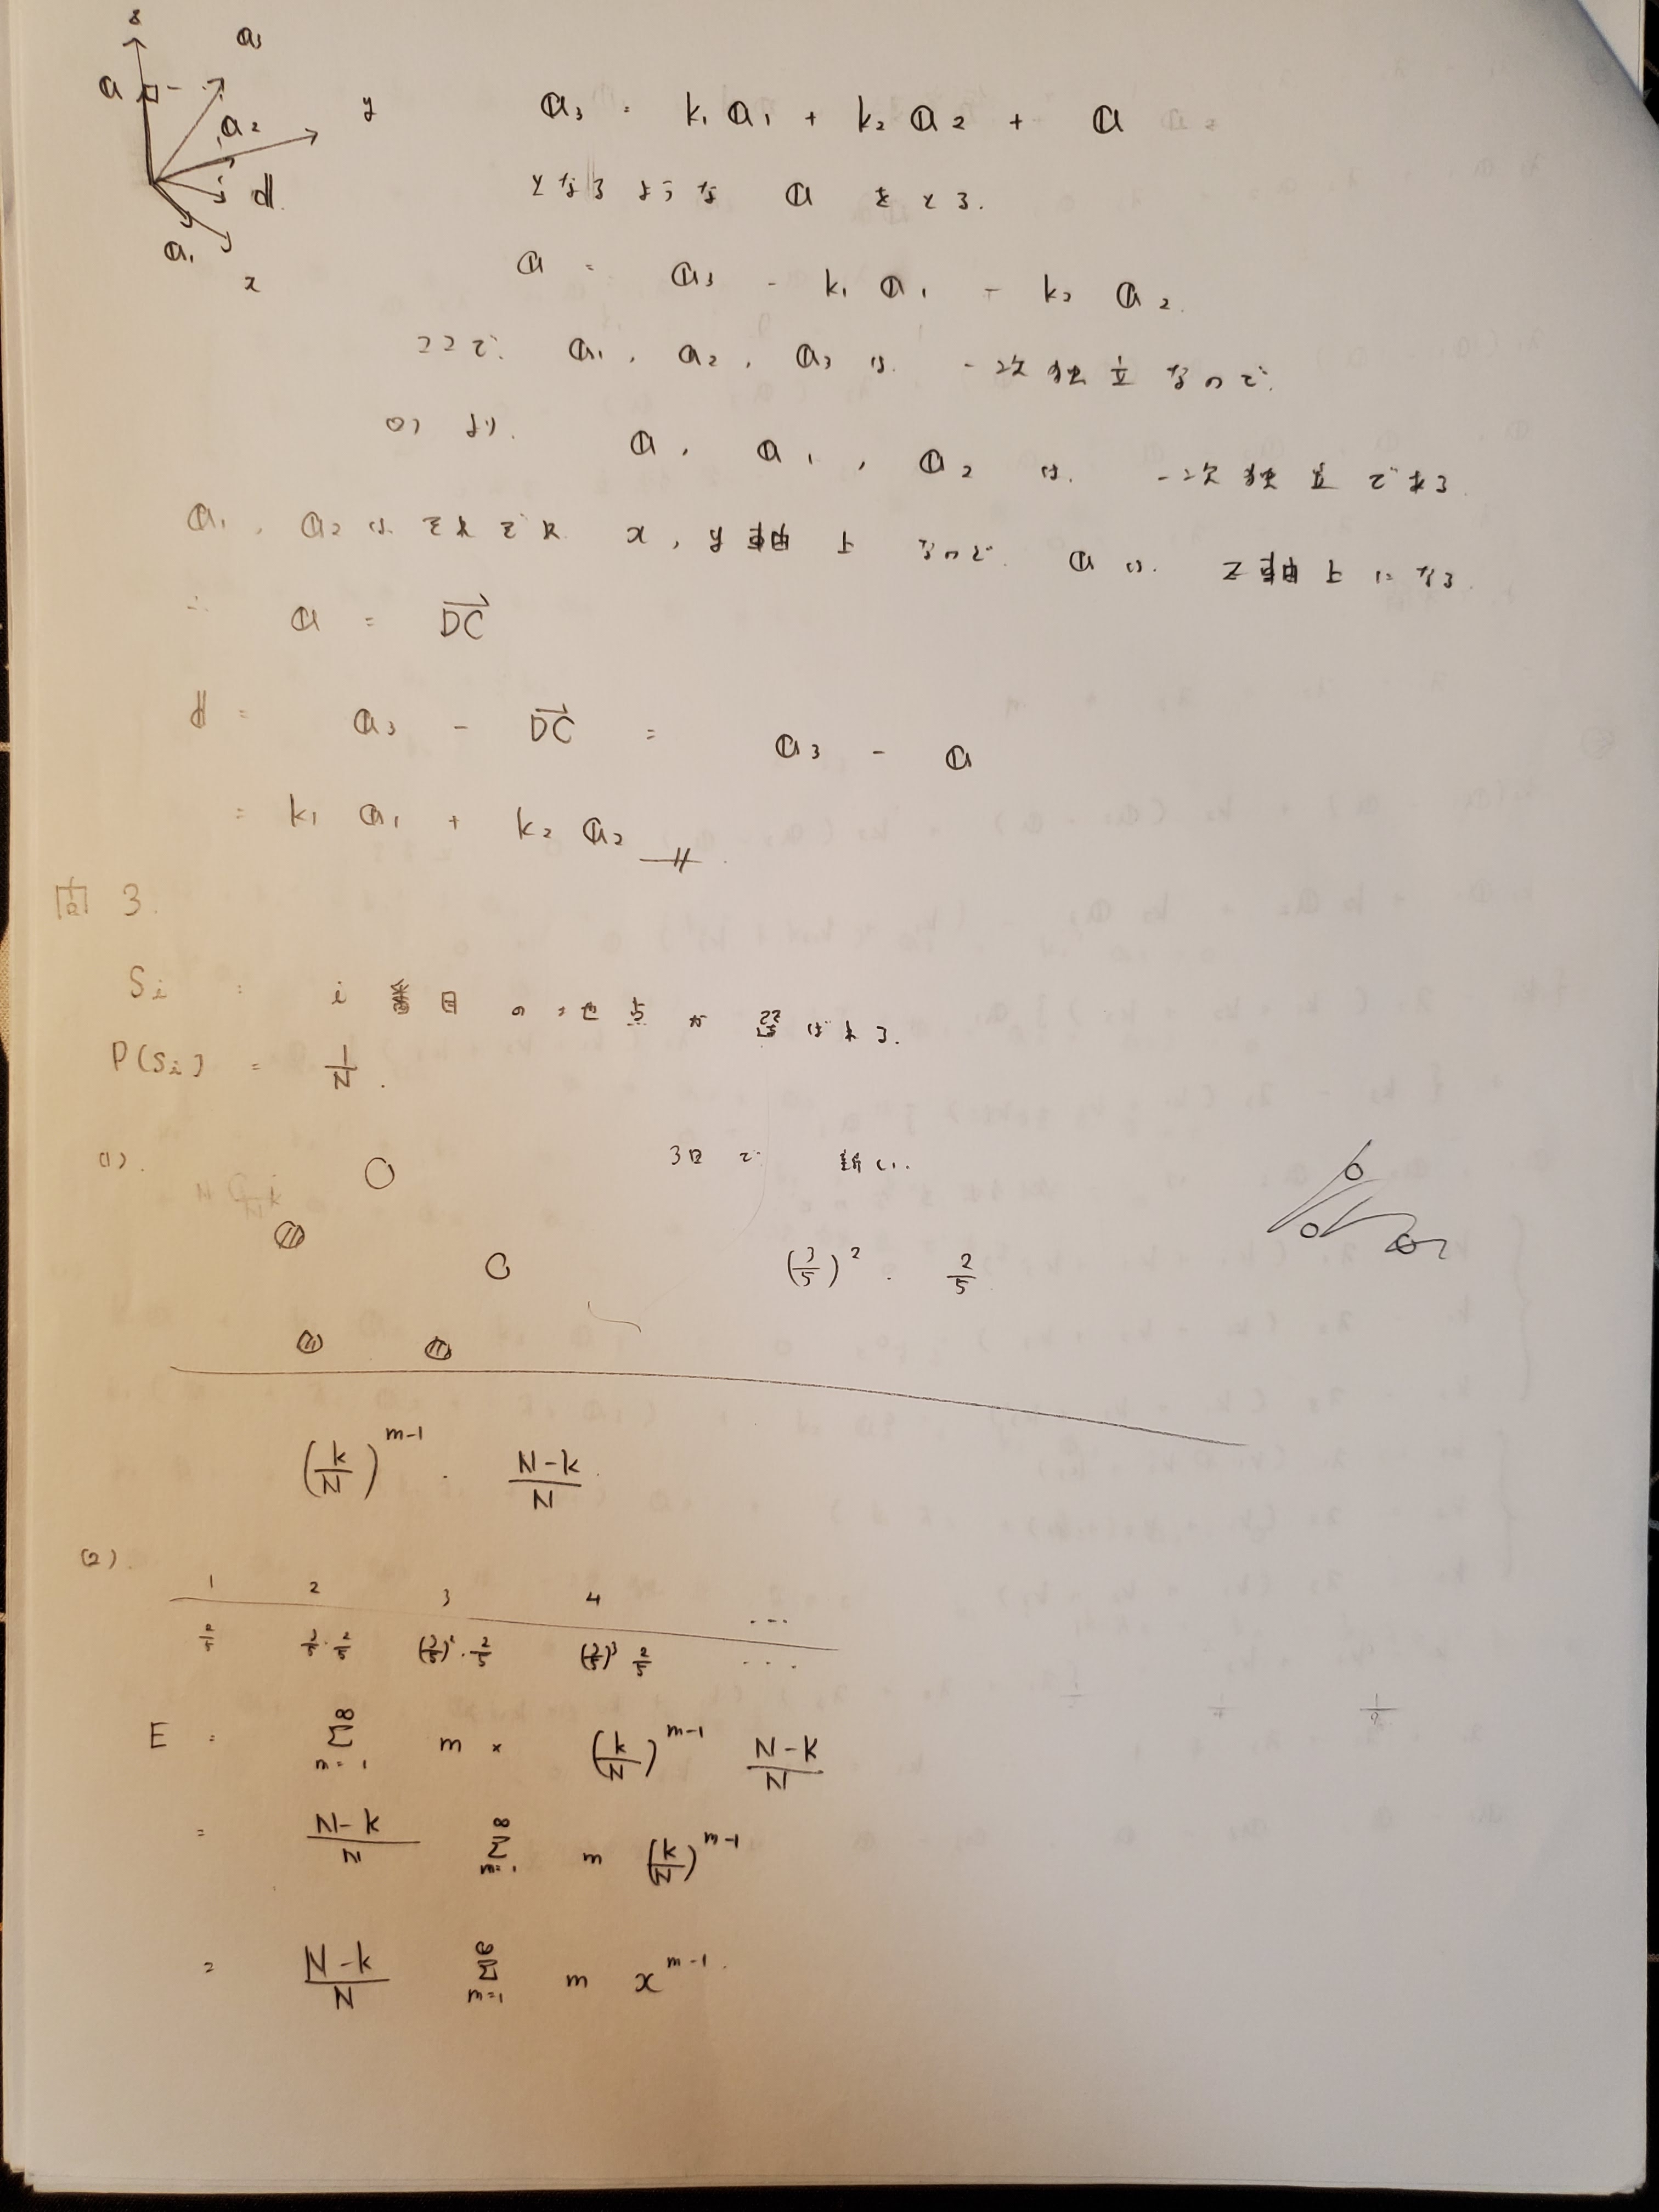 z
a₃
a
a₂
y
d
a₁
x
a₃ = k₁ a₁ + k₂ a₂ + a
となるような a をとる.
a = a₃ - k₁ a₁ - k₂ a₂.
ここで. a₁, a₂, a₃ は. 一次独立なので.
より. a, a₁, a₂ は. 一次独立である.
a₁, a₂ はそれぞれ x, y 軸上 なので. a は. z軸上になる.
∴ a = DC→
d = a₃ - DC→ = a₃ - a
= k₁ a₁ + k₂ a₂
問 3.
Sᵢ : i 番目の地点が選ばれる.
P(Sᵢ) = 1/N.
(1). 3回で 新しい.
(3/5)² · 2/5
(k/N)^(m-1) · (N-k)/N.
(2).
1 2 3 4 ...
2/5 3/5 · 2/5 (3/5)² · 2/5 (3/5)³ 2/5 ...
E = Σ_(m=1)^∞ m × (k/N)^(m-1) (N-k)/N
= (N-k)/N Σ_(m=1)^∞ m (k/N)^(m-1)
= (N-k)/N Σ_(m=1)^∞ m x^(m-1).